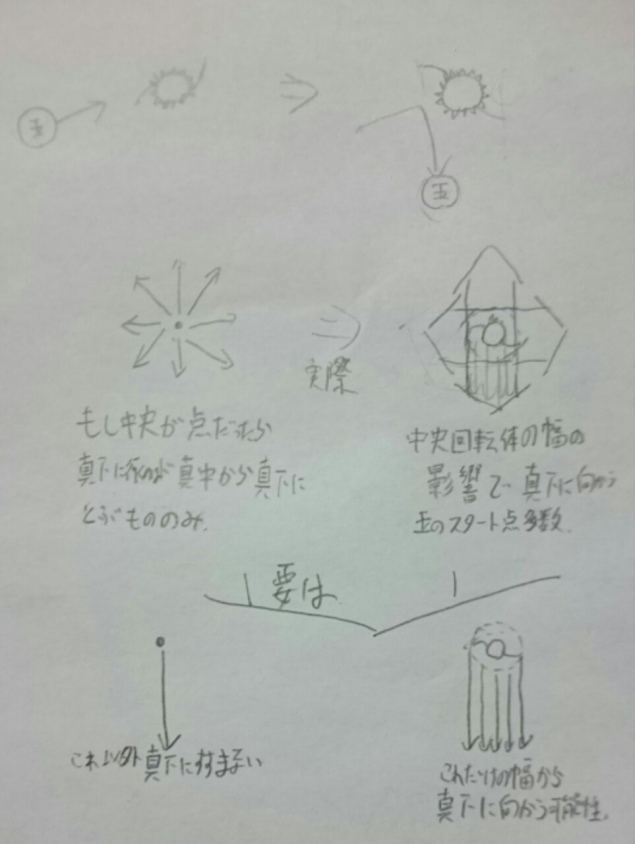 玉
玉
実際
もし中央が点だったら
真下に行くのが真中から真下に
とぶもののみ。
中央回転体の幅の
影響で真下に向かう
玉のスタート点多数。
要は
これ以外真下にすすまない
これだけの幅から
真下に向かう可能性。